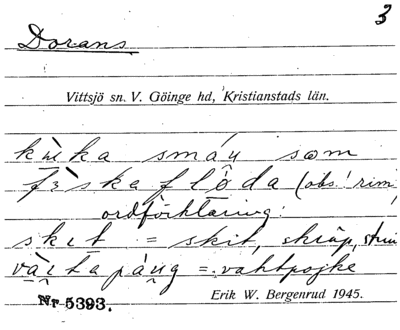 3
Dorans
Vittsjö sn. V. Göinge hd, Kristianstads län.
kuka små som
fiska flöda (obs! rim)
ordförklaring:
skit = skit, skräp, strunt
väitapåug = vaktpojke
Erik W. Bergenrud 1945.
Nr 5393.